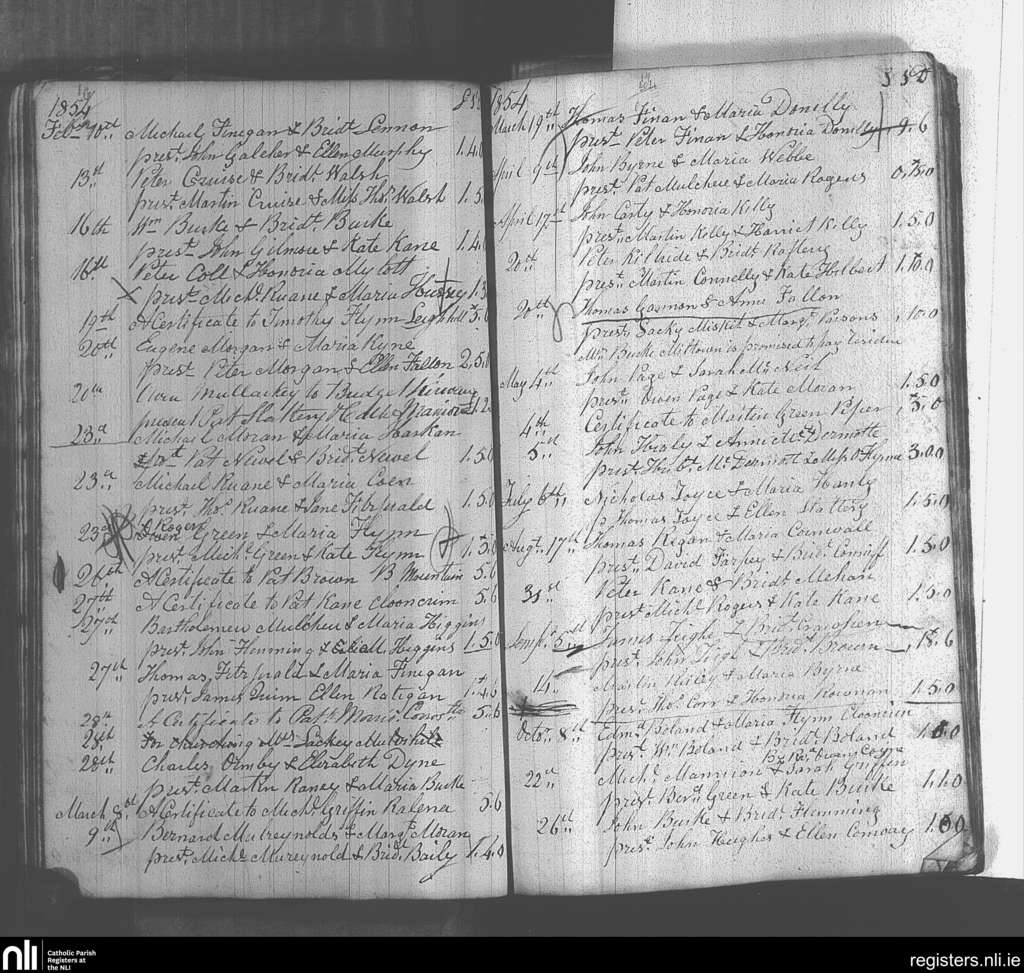 1854
Feb. 10th Michael Finegan & Bridt Lennon
prest. John Galcher & Ellen Murphy 1.4.0
13th Peter Cruise & Bridt Walsh
prest. Martin Cruise & Miss Thos. Walsh 1.5
16th Wm Burke & Bridt. Burke
prest John Gilmore & Kate Kane 1.4.0
16th Peter Coll & Honoria Mylott
prest. Michl. Ruane & Maria 1.3
19th A Certificate to Timothy Flynn 5.6
20th Eugene Morgan & Maria Kyne
prest Peter Morgan & Ellen Fallon 2.5.0
20th Mullackey to Bridget
present Pat Slattery 1.2
23d Michael Moran & Maria Harkan
prest Pat Newel & Bridt. Newel 1.5.0
23d Michael Ruane & Maria Coen
prest. Thos. Ruane & Jane Fitzpald 1.5.0
23d Roger
Green & Maria Flynn
prest. Michl. Green & Kate Flynn 1.5.0
26th A Certificate to Pat Brown B Mountain 5.6
27th A Certificate to Pat Kane Clooncrim 5.6
27th Bartholemew Mulchen & Maria Higgins
prest. John Flemming & Higgins 1.5.0
27th Thomas Fitzpald & Maria Finegan
prest. James Quinn Ellen Ratigan 1.4.6
28th A Certificate to Patk Morris 5.6
28th For churching Mrs Lackey
28th Charles Ormby & Elizabeth Dyne
prest. Martin Raney & Maria Burke
March 8th A Certificate to Michl. Griffin Ralena 5.6
9th Bernard Mulreynolds & Margt. Moran
prest. Michl. Mureynold & Bridt. Baily 1.4.0
1854 £ S D
March 19th Thomas Finan & Maria Donelly
prest Peter Finan & Honoria Donelly 9.6
April 9th John Byrne & Maria Webbe
prest Pat Mulchen & Maria Rogers 0.15.0
April 17th John Carty & Honoria Kelly
prest. Martin Kelly & Harriet Kelly 1.5.0
20th Peter Kilbride & Bridt. Raftery
prest. Martin Connelly & Kate Hilbert 1.10.0
20th Thomas Gannon & Anne Fallon
prest. Lacky Miskit & Margt. Parsons 1.0.0
Mr. Burke Milltown is promised to pay
May 4th John Page & Sarah McNeil
prest. Owen Page & Kate Moran 1.5.0
4th Certificate to Martin Green Piper 5.0
5th John & Anne McDermotte
prest. McDermott & Miss O'Flynn 3.0.0
July 6th Nicholas Joyce & Maria Hanly
p. Thomas Joyce & Ellen Slattery 1.5.0
Augt. 17th Thomas Regan & Maria Cornwall
prest. David Farpey & Bridt. Conniff 1.5.0
31st Peter Kane & Bridt. Mehan
prest Michl. Rogers & Kate Kane 1.5.0
5th James Feighe & Bridt.
prest. John & Bridt. Brown 18.6
14 Martin Kiley & Maria Byrne
prest. Thos. Corr & Honoria Noonan 1.5.0
Octor. 8th Edmd. Boland & Maria Flynn Clooncrim
prest. Wm Boland & Bridt. Boland 1.0.0
By Revd. Owen Coyne
22nd Michl. Mannion & Sarah Griffin
prest. Bernd. Green & Kate Burke 1.1.0
26th John Burke & Bridt. Flemming
prest. John Hughes & Ellen Conway 1.0.0
nli Catholic Parish
Registers at
the NLI
registers.nli.ie